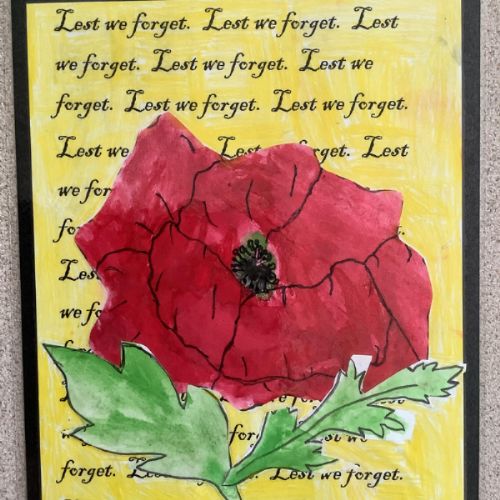 Lest we forget. Lest we forget. Lest
we forget. Lest we forget. Lest we
forget. Lest we forget. Lest we forget.
Lest we forget. Lest
we
Lest
we
we
forget. Lest we forget.